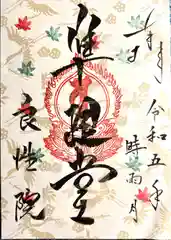 奉拝
令和五年
時雨月
準提堂
良性院